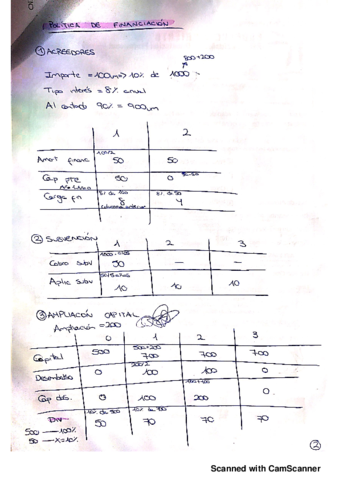 POLÍTICA DE FINANCIACIÓN
① ACREEDORES
800+200
Importe = 100um => 10% de 1000
Tipo interés = 8% anual
Al contado 90% = 900um
1 2
100/2
Amort financ 50 50
Cap pte 50 0
Carga fin 8 4
② SUBVENCIÓN
1 2 3
Cobro subv 50 — —
Aplic subv 10 10 10
③ AMPLIACIÓN CAPITAL
Ampliación = 200
0 1 2 3
500+200
Capital 500 700 700 700
200/2
Desembolso 0 100 100 0
Cap des. 0 100 200 0
10% de 500 10% de 700
50 70 70 70
500 — 100%
50 — X=10%
②
Scanned with CamScanner